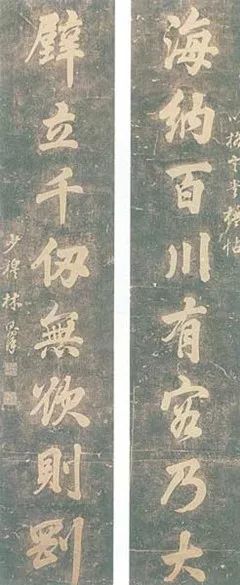 海納百川有容乃大
壁立千仞無欲則剛
少穆林則徐